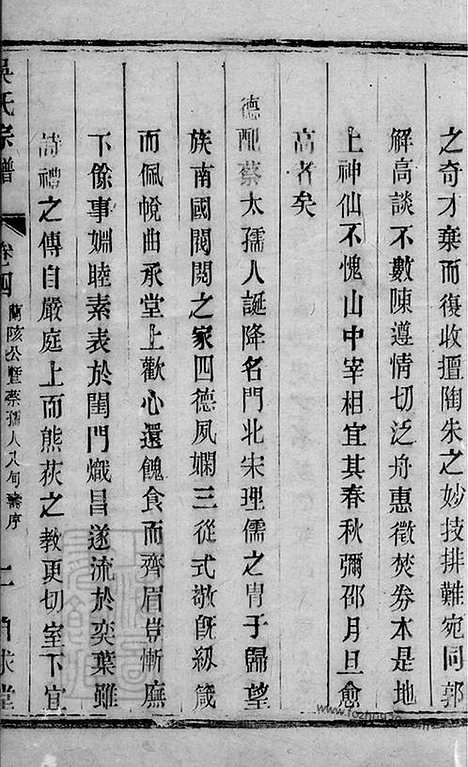 之奇才棄而復收擅陶朱之妙技排難宛同郭
解高談不數陳遵情切泛舟惠徵焚券本是地
上神仙不愧山中宰相宜其春秋彌邵月旦愈
高者矣
德配蔡太孺人誕降名門北宋理儒之冑于歸望
族南國閥閱之家四德夙嫻三從式敬既紉箴
而佩帨曲承堂上歡心還餽食而齊眉豈慚廡
下餘事姻睦素表於閨門熾昌遂流於奕葉雖
詩禮之傳自嚴庭上而熊荻之教更切室下宜
吳氏宗譜 卷四 蘭陔公暨蔡孺人八旬壽序 二
www.fozhu920.com